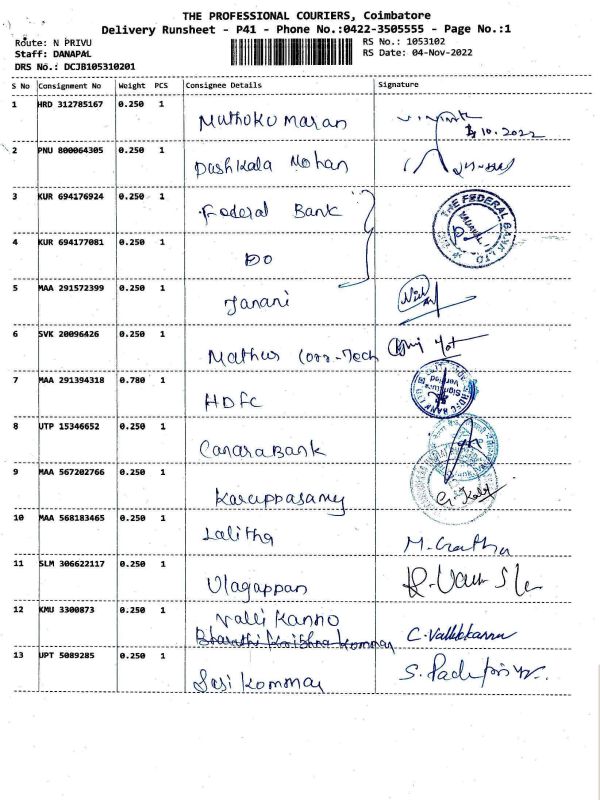 THE PROFESSIONAL COURIERS, Coimbatore
Delivery Runsheet - P41 - Phone No.:0422-3505555 - Page No.:1
Route: N PRIVU
RS No.: 1053102
Staff: DANAPAL
RS Date: 04-Nov-2022
DRS No.: DCJB105310201
S No Consignment No Weight PCS Consignee Details Signature
1 HRD 312785167 0.250 1 Muthoku maran
10.2022
2 PNU 800064305 0.250 1 Dashkala Mohan
3 KUR 694176924 0.250 1 Federal Bank
THE FEDERAL BANK LTD
4 KUR 694177081 0.250 1 DO
5 MAA 291572399 0.250 1 Janani
6 SVK 20096426 0.250 1 Mathus Corr-Tech
7 MAA 291394318 0.780 1 HDFC
Signature Verified
8 UTP 15346652 0.250 1 Canara Bank
9 MAA 567202766 0.250 1 Karuppasamy
10 MAA 568183465 0.250 1 Lalitha
11 SLM 306622117 0.250 1 Ulagappan
12 KMU 3300873 0.250 1 Valli Kanno C. Vallikkannu
Bharathi Krishna Kommar
13 UPT 5089285 0.250 1 Sasi Kommar